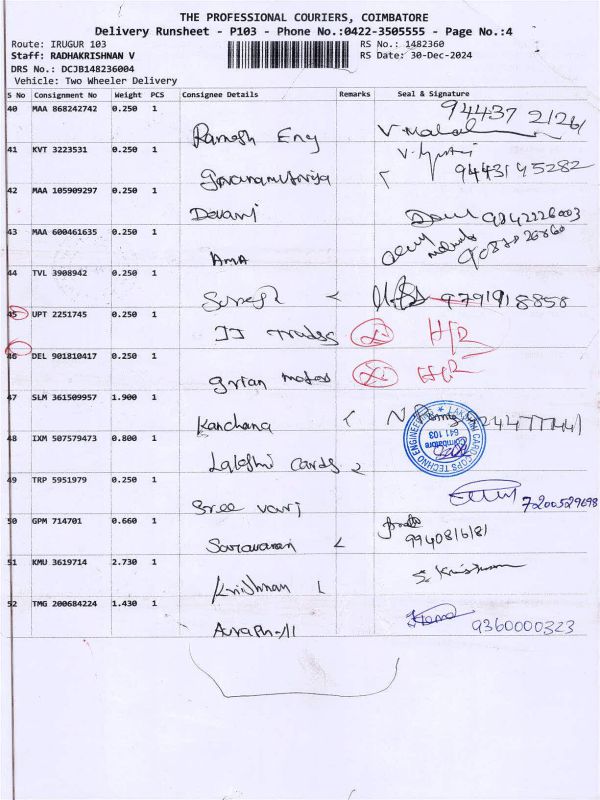 THE PROFESSIONAL COURIERS, COIMBATORE
Delivery Runsheet - P103 - Phone No.:0422-3505555 - Page No.:4
Route: IRUGUR 103 RS No.: 1482360
Staff: RADHAKRISHNAN V RS Date: 30-Dec-2024
DRS No.: DCJB148236004
Vehicle: Two Wheeler Delivery
S No Consignment No Weight PCS Consignee Details Remarks Seal & Signature
40 MAA 868242742 0.250 1
Ramesh Eng
41 KVT 3223531 0.250 1
9443145282
42 MAA 105909297 0.250 1
Devanj
43 MAA 600461635 0.250 1
AMA
44 TVL 3908942 0.250 1
Suresh 9791918858
45 UPT 2251745 0.250 1
JJ Trades H/R
46 DEL 901810417 0.250 1
H/R
47 SLM 361509957 1.900 1
Kanchana
48 IXM 507579473 0.800 1
Lakshmi Cards
49 TRP 5951979 0.250 1
Sree 7200529698
50 GPM 714701 0.660 1
Saravanan 9940816181
51 KMU 3619714 2.730 1
Krishnan S. Krishnan
52 TMG 200684224 1.430 1
9360000323